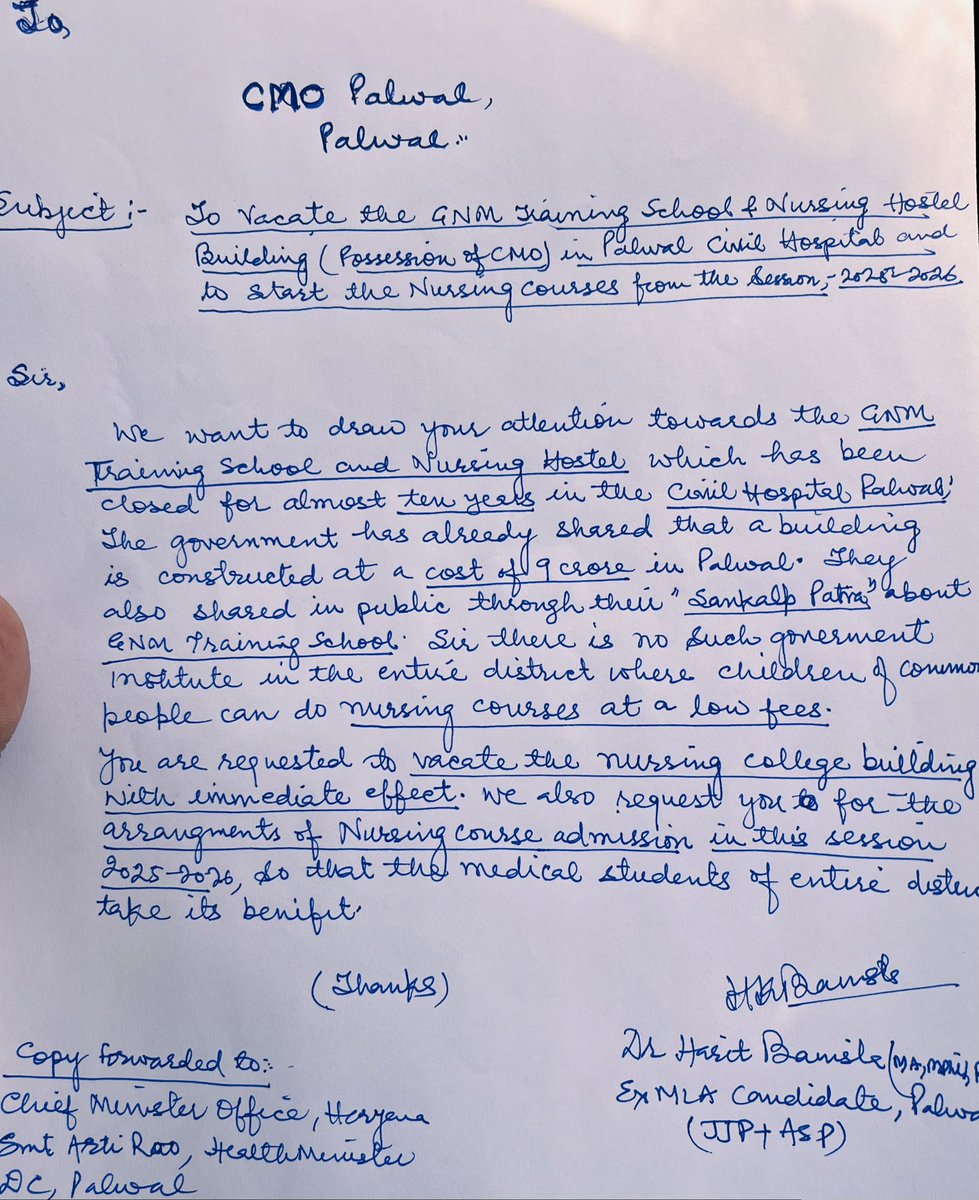 To,
CMO Palwal,
Palwal..
Subject :- To Vacate the GNM Training School & Nursing Hostel
Building (Possession of CMO) in Palwal Civil Hospital and
to start the Nursing courses from the Session,-2025-2026.
Sir,
We want to draw your attention towards the GNM
Training School and Nursing Hostel which has been
closed for almost ten years in the Civil Hospital Palwal.
The government has already shared that a building
is constructed at a cost of 9 crore in Palwal. They
also shared in public through their "Sankalp Patra" about
GNM Training School. Sir there is no such goverment
institute in the entire district where children of common
people can do nursing courses at a low fees.
You are requested to vacate the nursing college building
with immediate effect. We also request you to for the
arrangments of Nursing course admission in this session
2025-2026, so that the medical students of entire
take its benifit.
(Thanks)
Dr Harit Bainsla (MA,
Ex MLA Candidate, Palwal
(JJP+ASP)
Copy forwarded to:-
Chief Minister Office, Haryana
Smt Arti Rao, Health Minister
DC, Palwal